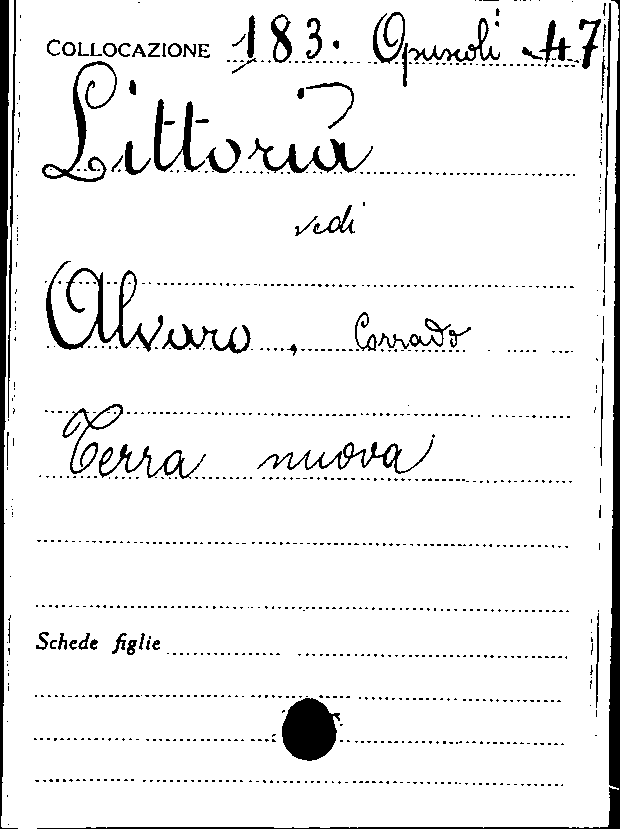 COLLOCAZIONE 183. Opuscoli 47
Littoria
vedi
Alvaro, Corrado
Terra nuova
Schede figlie